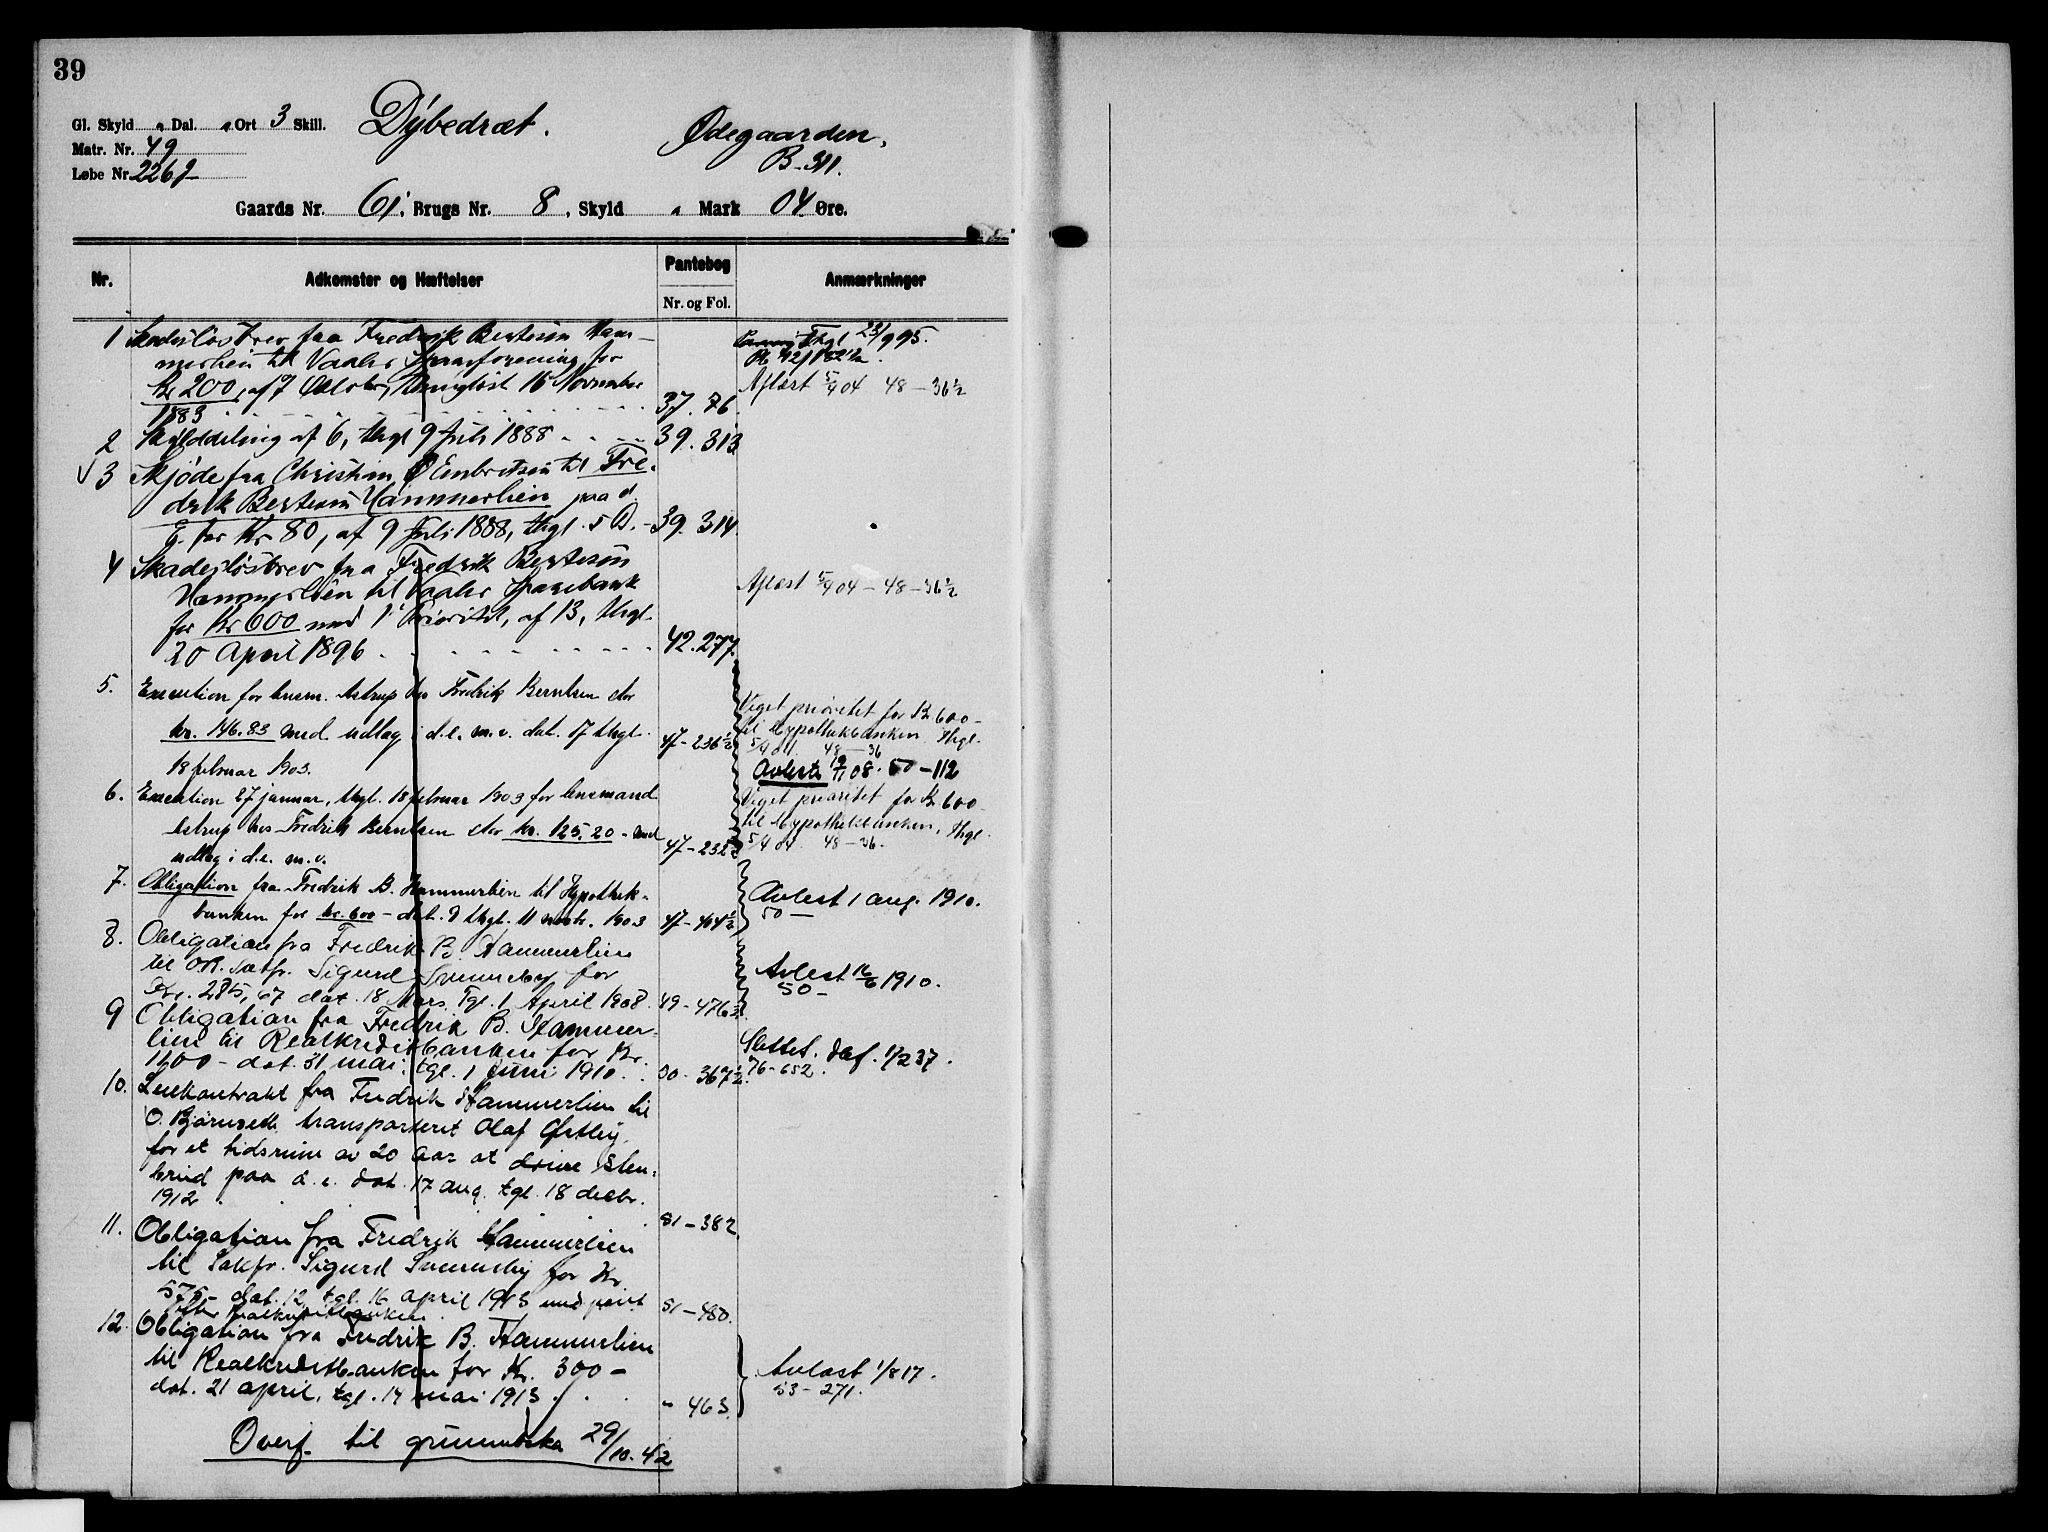 39
Gl. Skyld „ Dal. „ Ort 3 Skill. Dybedræt. Ødegaarden,
Matr. Nr. 49 B-311.
Løbe Nr.
Gaards Nr. 61, Brugs Nr. 8, Skyld „ Mark 04 Øre.
Nr. Adkomster og Hæftelser Pantebog Anmærkninger
Nr. og Fol.
1 Skadesløsbrev fra Fredrik Bertesen Ham-
merlien til Vaaler Spareforening for
Kr 200, af 7 Octobr, thinglæst 15 November
1883 37. 76
Thgl 23/9 95.
Aflæst 5/4 04 48-36½
2 Skylddeling af 6, thgl 9 Juli 1888 39. 313
✓ 3 Skjøde fra Christian Embretsen til Fre-
drik Bertesen Hammerlien paa d.
E. for Kr 80, af 9 Juli 1888, thgl. s D. 39. 314
4 Skadesløsbrev fra Fredrik Bertesen
Hammerlien til Vaaler Sparebank
for Kr 600 med 1' Prioritet, af 13, thgl.
20 April 1896 42. 277
Aflæst 5/4 04-48-36½
5. Execution for lensm. Astrup hos Fredrik Berntsen stor
kr. 146.83 med udlæg i d.e. m.v. dat. 17 thgl.
18 februar 1903. 47-236½
Viget prioritet for Kr 600-
til Hypothekbanken. Thgl.
5/4 04. 48-36
Avlæst 19/11 08. 50-112
6. Execution 27 januar, thgl. 18 februar 1903 for lensmand
Astrup hos Fredrik Berntsen stor kr. 125.20 - med
udlæg i d.e. m.v. 47-232
Viget prioritet for Kr 600-
til Hypothekbanken, Thgl.
5/4 04. 48-36.
7. Obligation fra Fredrik B. Hammerlien til Hypothek-
banken for kr. 600- dat. 9 thgl. 11 novbr. 1903 47-404½
Avlæst 1 aug. 1910.
50-
8. Obligation fra Fredrik B. Hammerlien
til O.R. Sakfr. Sigurd Svenneby for
Kr. 285,67 dat. 18 Mars, Tgl. 1 April 1908. 49-476½
Avlæst 16/6 1910.
50-
9 Obligation fra Fredrik B. Hammer-
lien til Realkreditbanken for Kr.
1600- dat. 31 mai, tgl. 1 juni 1910. 50-367½
Slettet. Def. 1/2 37.
76-652.
10. Leiekontrakt fra Fredrik Hammerlien til
O. Bjørneseth transporteret Olaf Østby,
for et tidsrum av 20 aar at drive sten-
brud paa d.e. dat. 17 aug. tgl. 18 decbr.
1912 51-382
11. Obligation fra Fredrik Hammerlien
til Sakfr. Sigurd Svenneby for Kr
575- dat. 12, tgl. 16 april 1913 med priot.
efter Realkreditbanken. 51-450.
12. Obligation fra Fredrik B. Hammerlien
til Realkreditbanken for Kr. 300-
dat. 21 april, tgl. 14 mai 1913. „ 463
Avlæst 1/8 17.
53-271.
Overf. til grunnboka 29/10.42